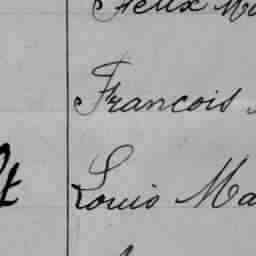 Felix
Francois
Louis Ma